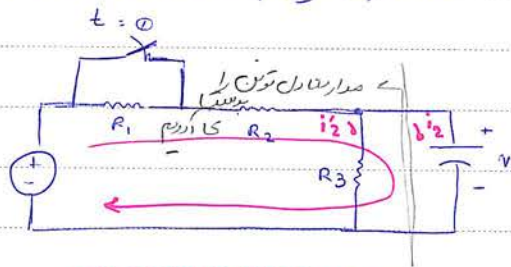 t = 0
مدار معادل تونن را
بدست
می آوریم
R1
R2
i'2
i2
+
R3
v
-
+
-